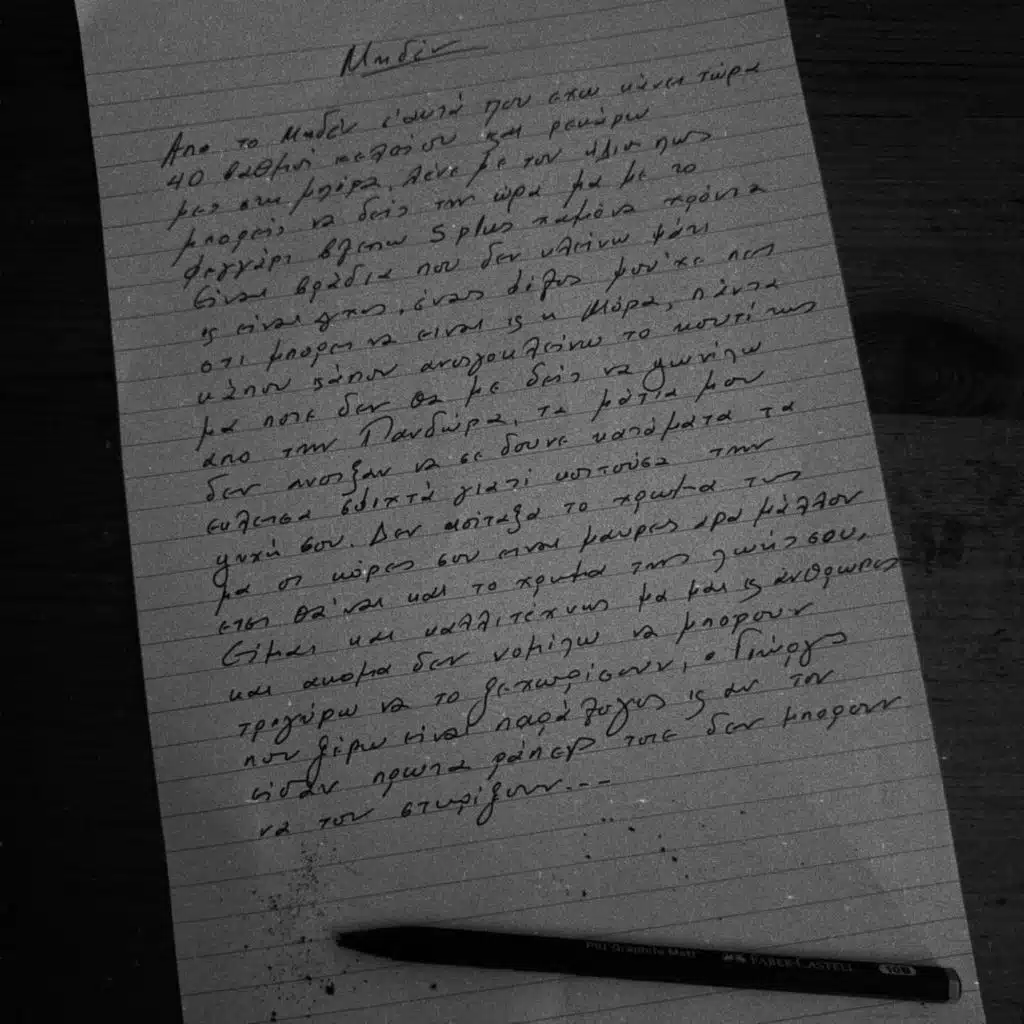 Μηδέν
Απο το μηδέν είαυτά που εχω κάνει τώρα
40 βαθμοί κελσίου και ρεκάρω
μες στη μπόρα. Λένε με τον ήλιο πως
μπορείς να δείς την ώρα μα με το
φεγγάρι βλεπω 5 plus χαμένα χρόνια
Είναι βράδια που δεν κλείνω μάτι
ις είναι ένας φίλος μου'χε πει
οτι μπορει να ειναι ις η Μόρα, πάντα
κάπου κάπου ανοιγοκλείνω το κουτί της
μα ποτε δεν θα με δείς να ψωνίζω
απο την Πανδώρα, τα μάτια μου
δεν ανοιξαν να σε δουνε κατάματα τα
εκλεισα σφιχτά γιατί κοιτούσα την
ψυχή σου. Δεν κοίταξα το χρωμα της
μα οι κόρες σου ειναι μαυρες αρα μάλλον
ετσι θα'ναι και το χρωμα της ζωής σου.
Είμαι και καλλιτέχνης μα μαι ις άνθρωπος
και ακομα δεν νομίζω να μπορουν
τριγύρω να το ξεχωρίσουν, ο Γιώργος
που ξέρω είναι παράλογος ις αν τον
είδαν πρωτα ράπερ τοτε δεν μπορουν
να τον στηρίξουν...
Pitt Graphite Matt FABER-CASTELL 10B